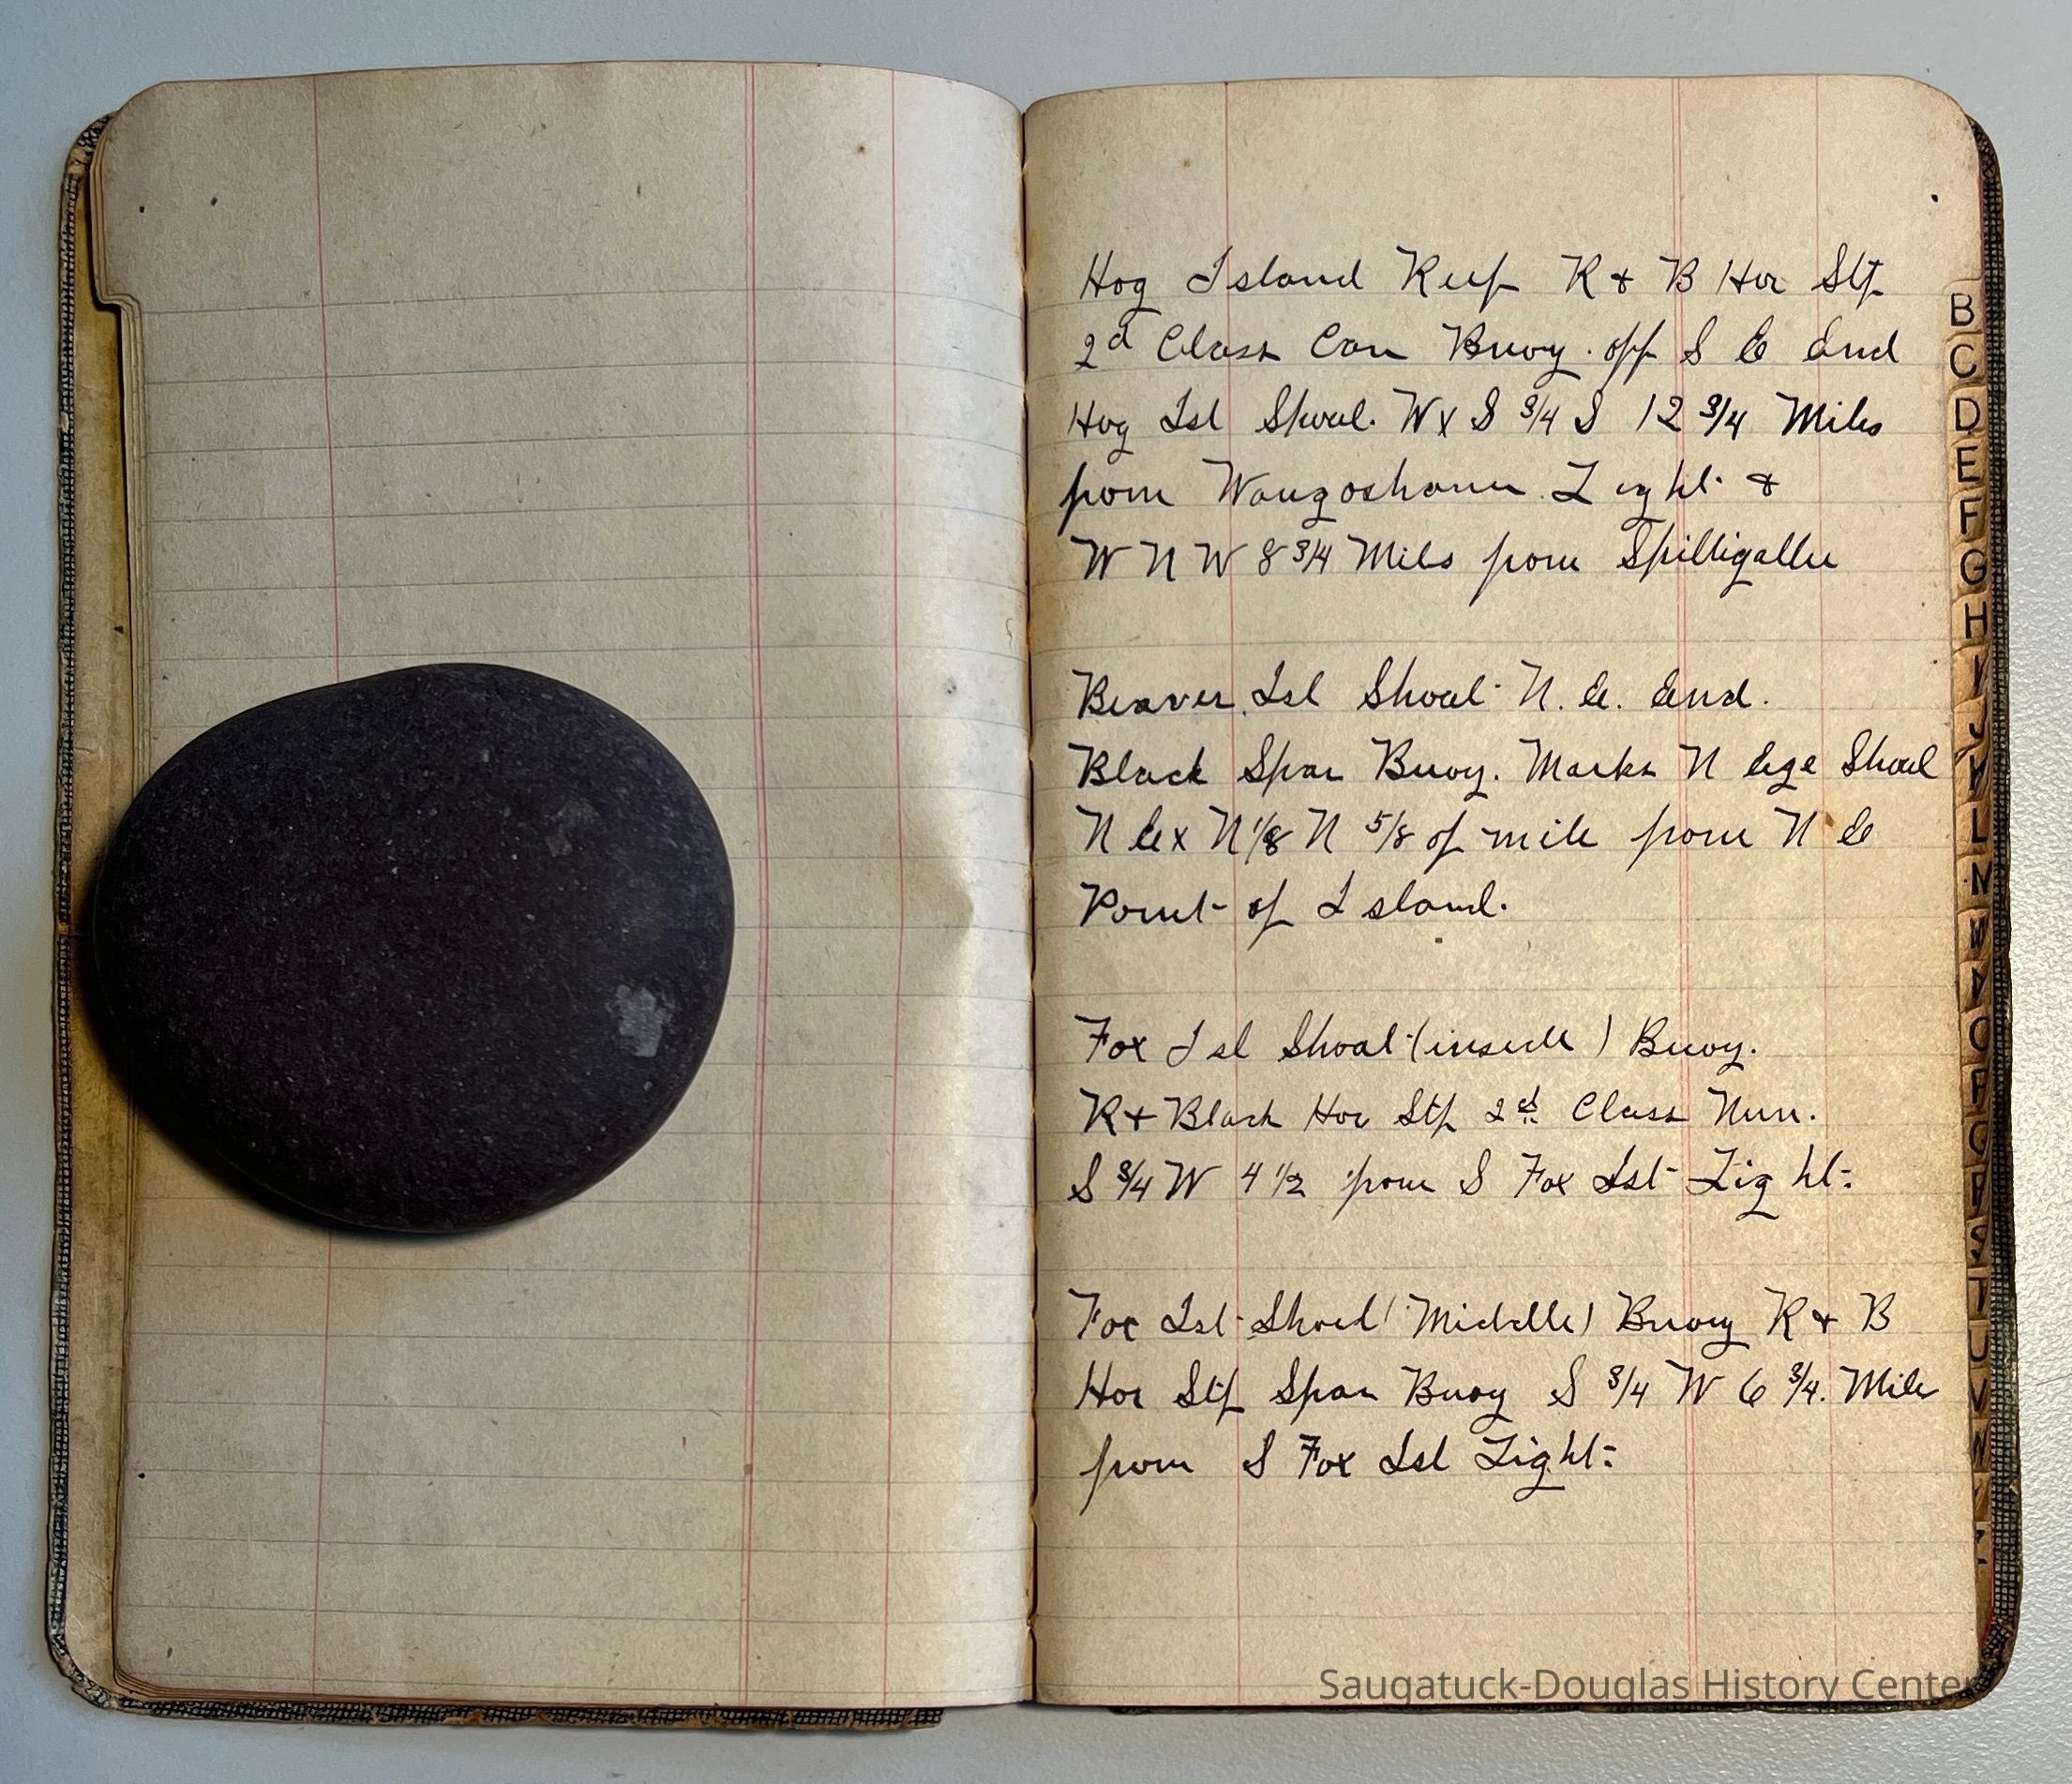 Hog Island Reef R & B Hor Stp
2d Class Can Buoy. off S E End
Hog Isl Shoal. W x S 3/4 S 12 3/4 Miles
from Waugoshance Light &
W N W 8 3/4 Miles from Skilligallee
Beaver Isl Shoal N. E. End.
Black Spar Buoy. Marks N Ege Shoal
N E x N 1/8 N 5/8 of mile from N E
Point of Island.
Fox Isl Shoal (inside) Buoy.
R & Black Hor Stp 2d Class Nun.
S 3/4 W 4 1/2 from S Fox Isl Light
Fox Isl Shoal (Middle) Buoy R & B
Hor Stp Spar Buoy S 3/4 W 6 3/4. Mile
from S Fox Isl Light
B
C
D
E
F
G
H
I
J
K
L
M
O
P
Q
R
S
T
U
V
W
Saugatuck-Douglas History Center